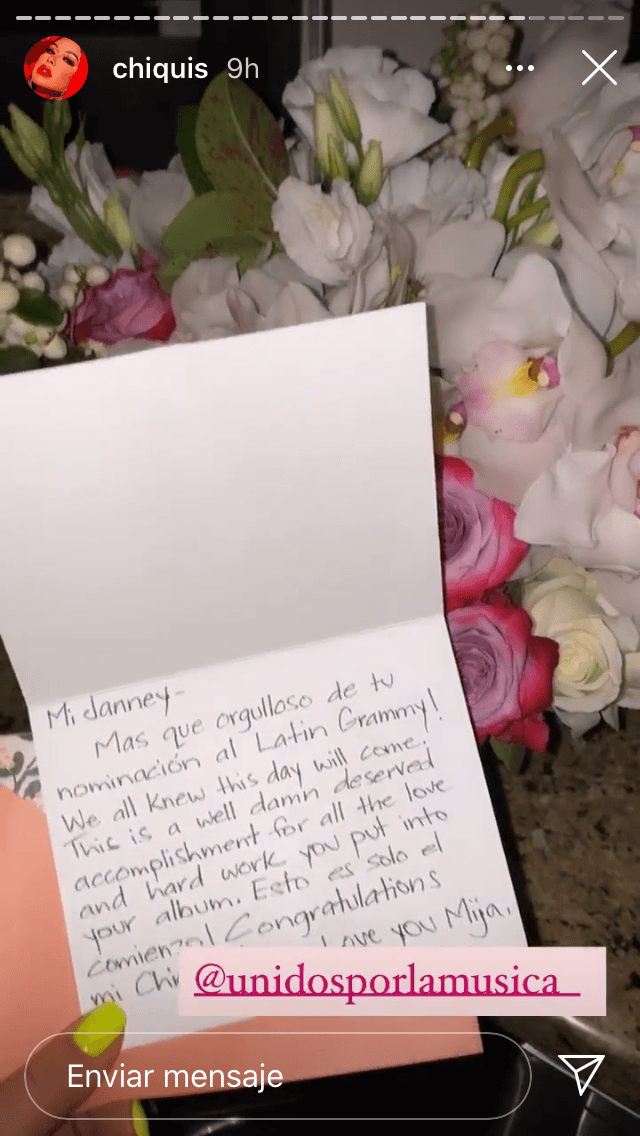 chiquis 9h
Mi Janney-
Mas que orgulloso de tu
nominación al Latin Grammy!
We all knew this day will come.
This is a well damn deserved
accomplishment for all the love
and hard work you put into
your album. Esto es solo el
comienzo! Congratulations
mi Chi Love you Mija.
@unidosporlamusica_
Enviar mensaje